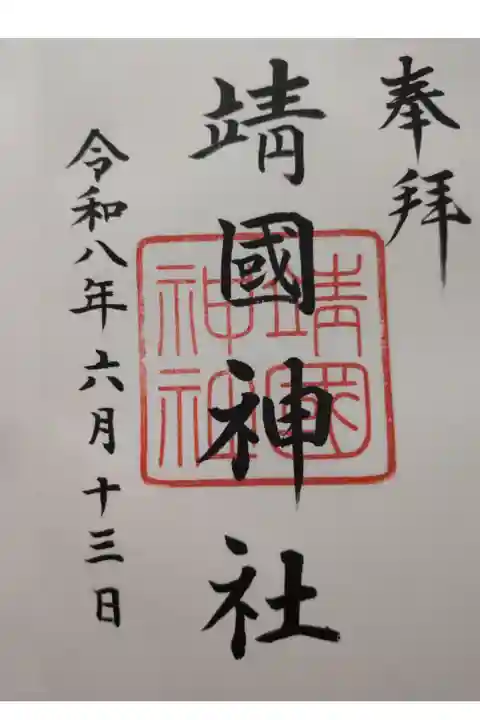 奉拝
靖國神社
靖國神社
令和八年六月十三日